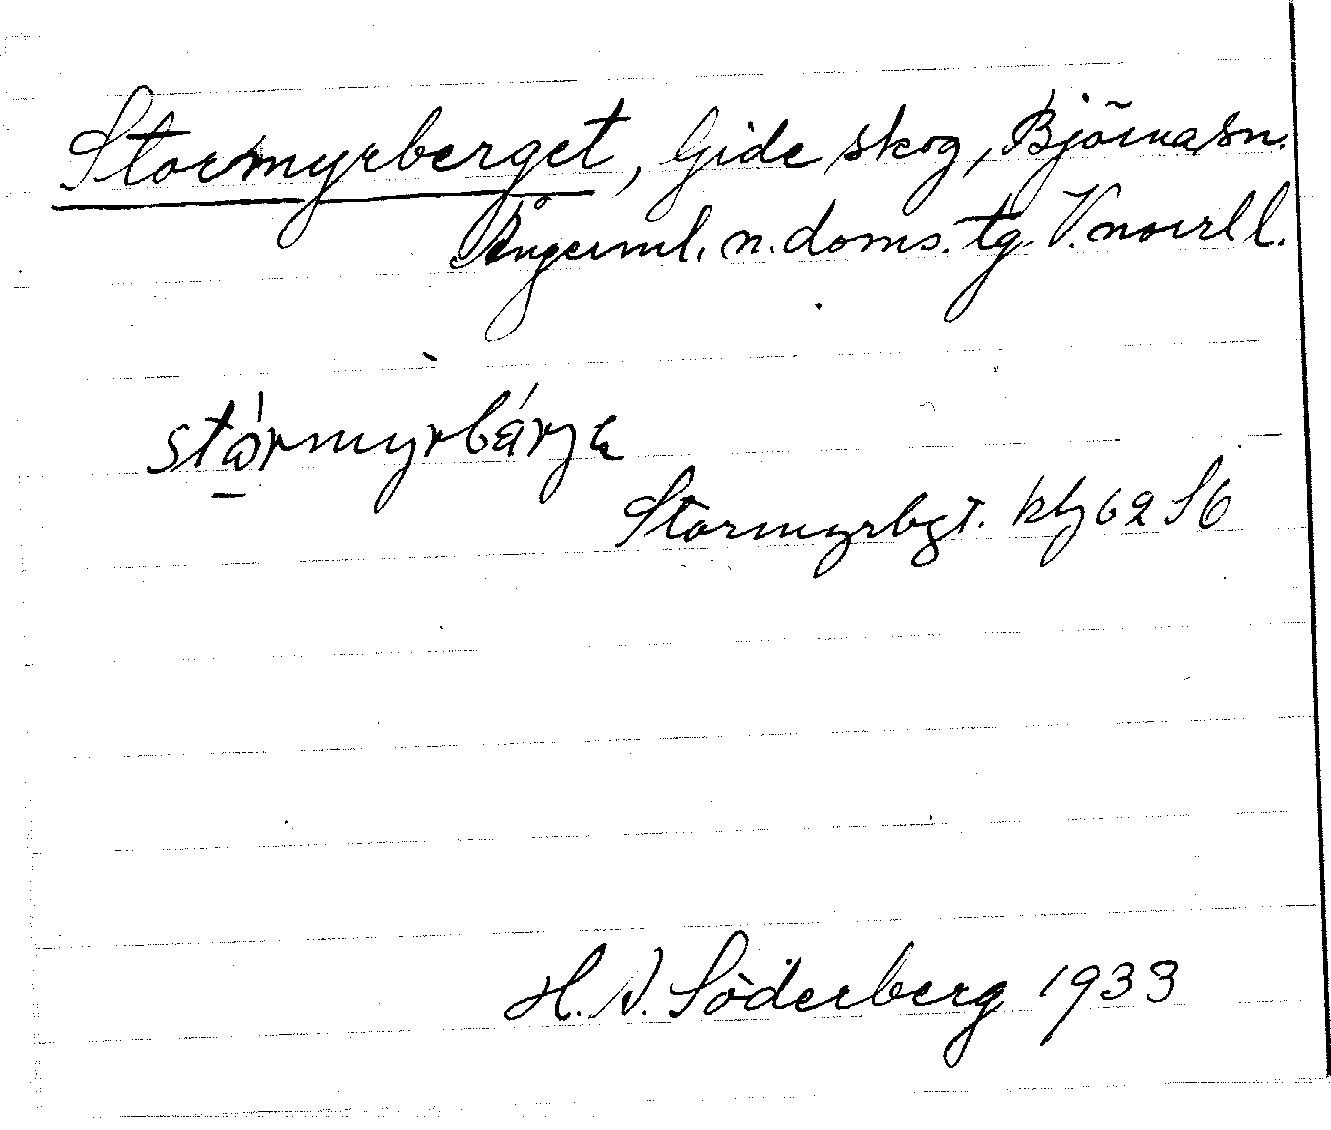 Stormyrberget, Gideskog, Björna sn.
Ångerml. n. doms. tg. V. norrl l.
stårmyrbárjə
Stormyrbgt. kbl 62 S6
H. V. Söderberg 1933